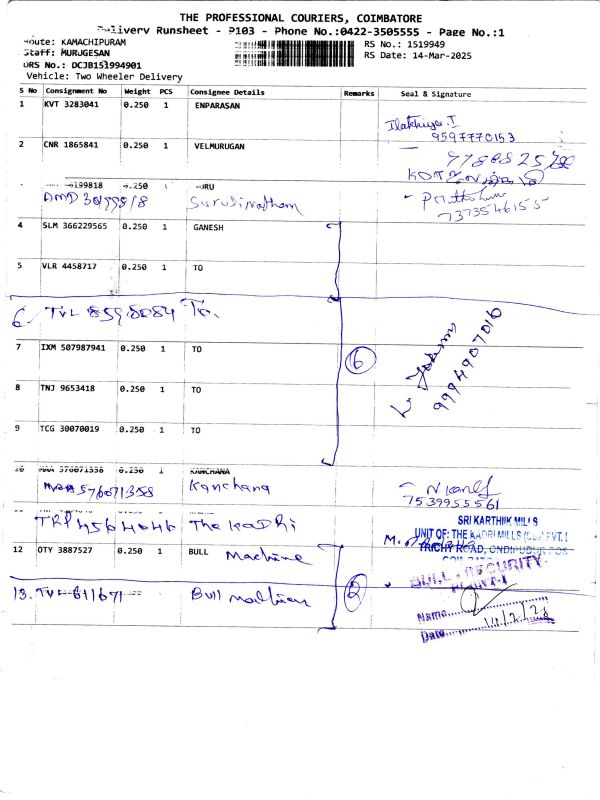 THE PROFESSIONAL COURIERS, COIMBATORE
Delivery Runsheet - P103 - Phone No.:0422-3505555 - Page No.:1
Route: KAMACHIPURAM
RS No.: 1519949
Staff: MURUGESAN
RS Date: 14-Mar-2025
DRS No.: DCJB151994901
Vehicle: Two Wheeler Delivery
S No Consignment No Weight PCS Consignee Details Remarks Seal & Signature
1 KVT 3283041 0.250 1 ENPARASAN
9597770153
2 CNR 1865841 0.250 1 VELMURUGAN
199818 0.250 GURU
DMD 30199818
7373546155
4 SLM 366229565 0.250 1 GANESH
5 VLR 4458717 0.250 1 TO
6 TVL 8598084 To.
7 IXM 507987941 0.250 1 TO
6
9994907016
8 TNJ 9653418 0.250 1 TO
9 TCG 30070019 0.250 1 TO
10 MAA 576071358 0.250 1 KANCHANA
MAA 576071358 Kanchana
7539955561
TRP 4564646 The KADRI
SRI KARTHIK MILLS
UNIT OF: THE KADRI MILLS
TRICHY ROAD, ONDIPUDUR
12 OTY 3887527 0.250 1 BULL Machine
BULL SECURITY
13. TVL 611671 Bull
2
Name
Date